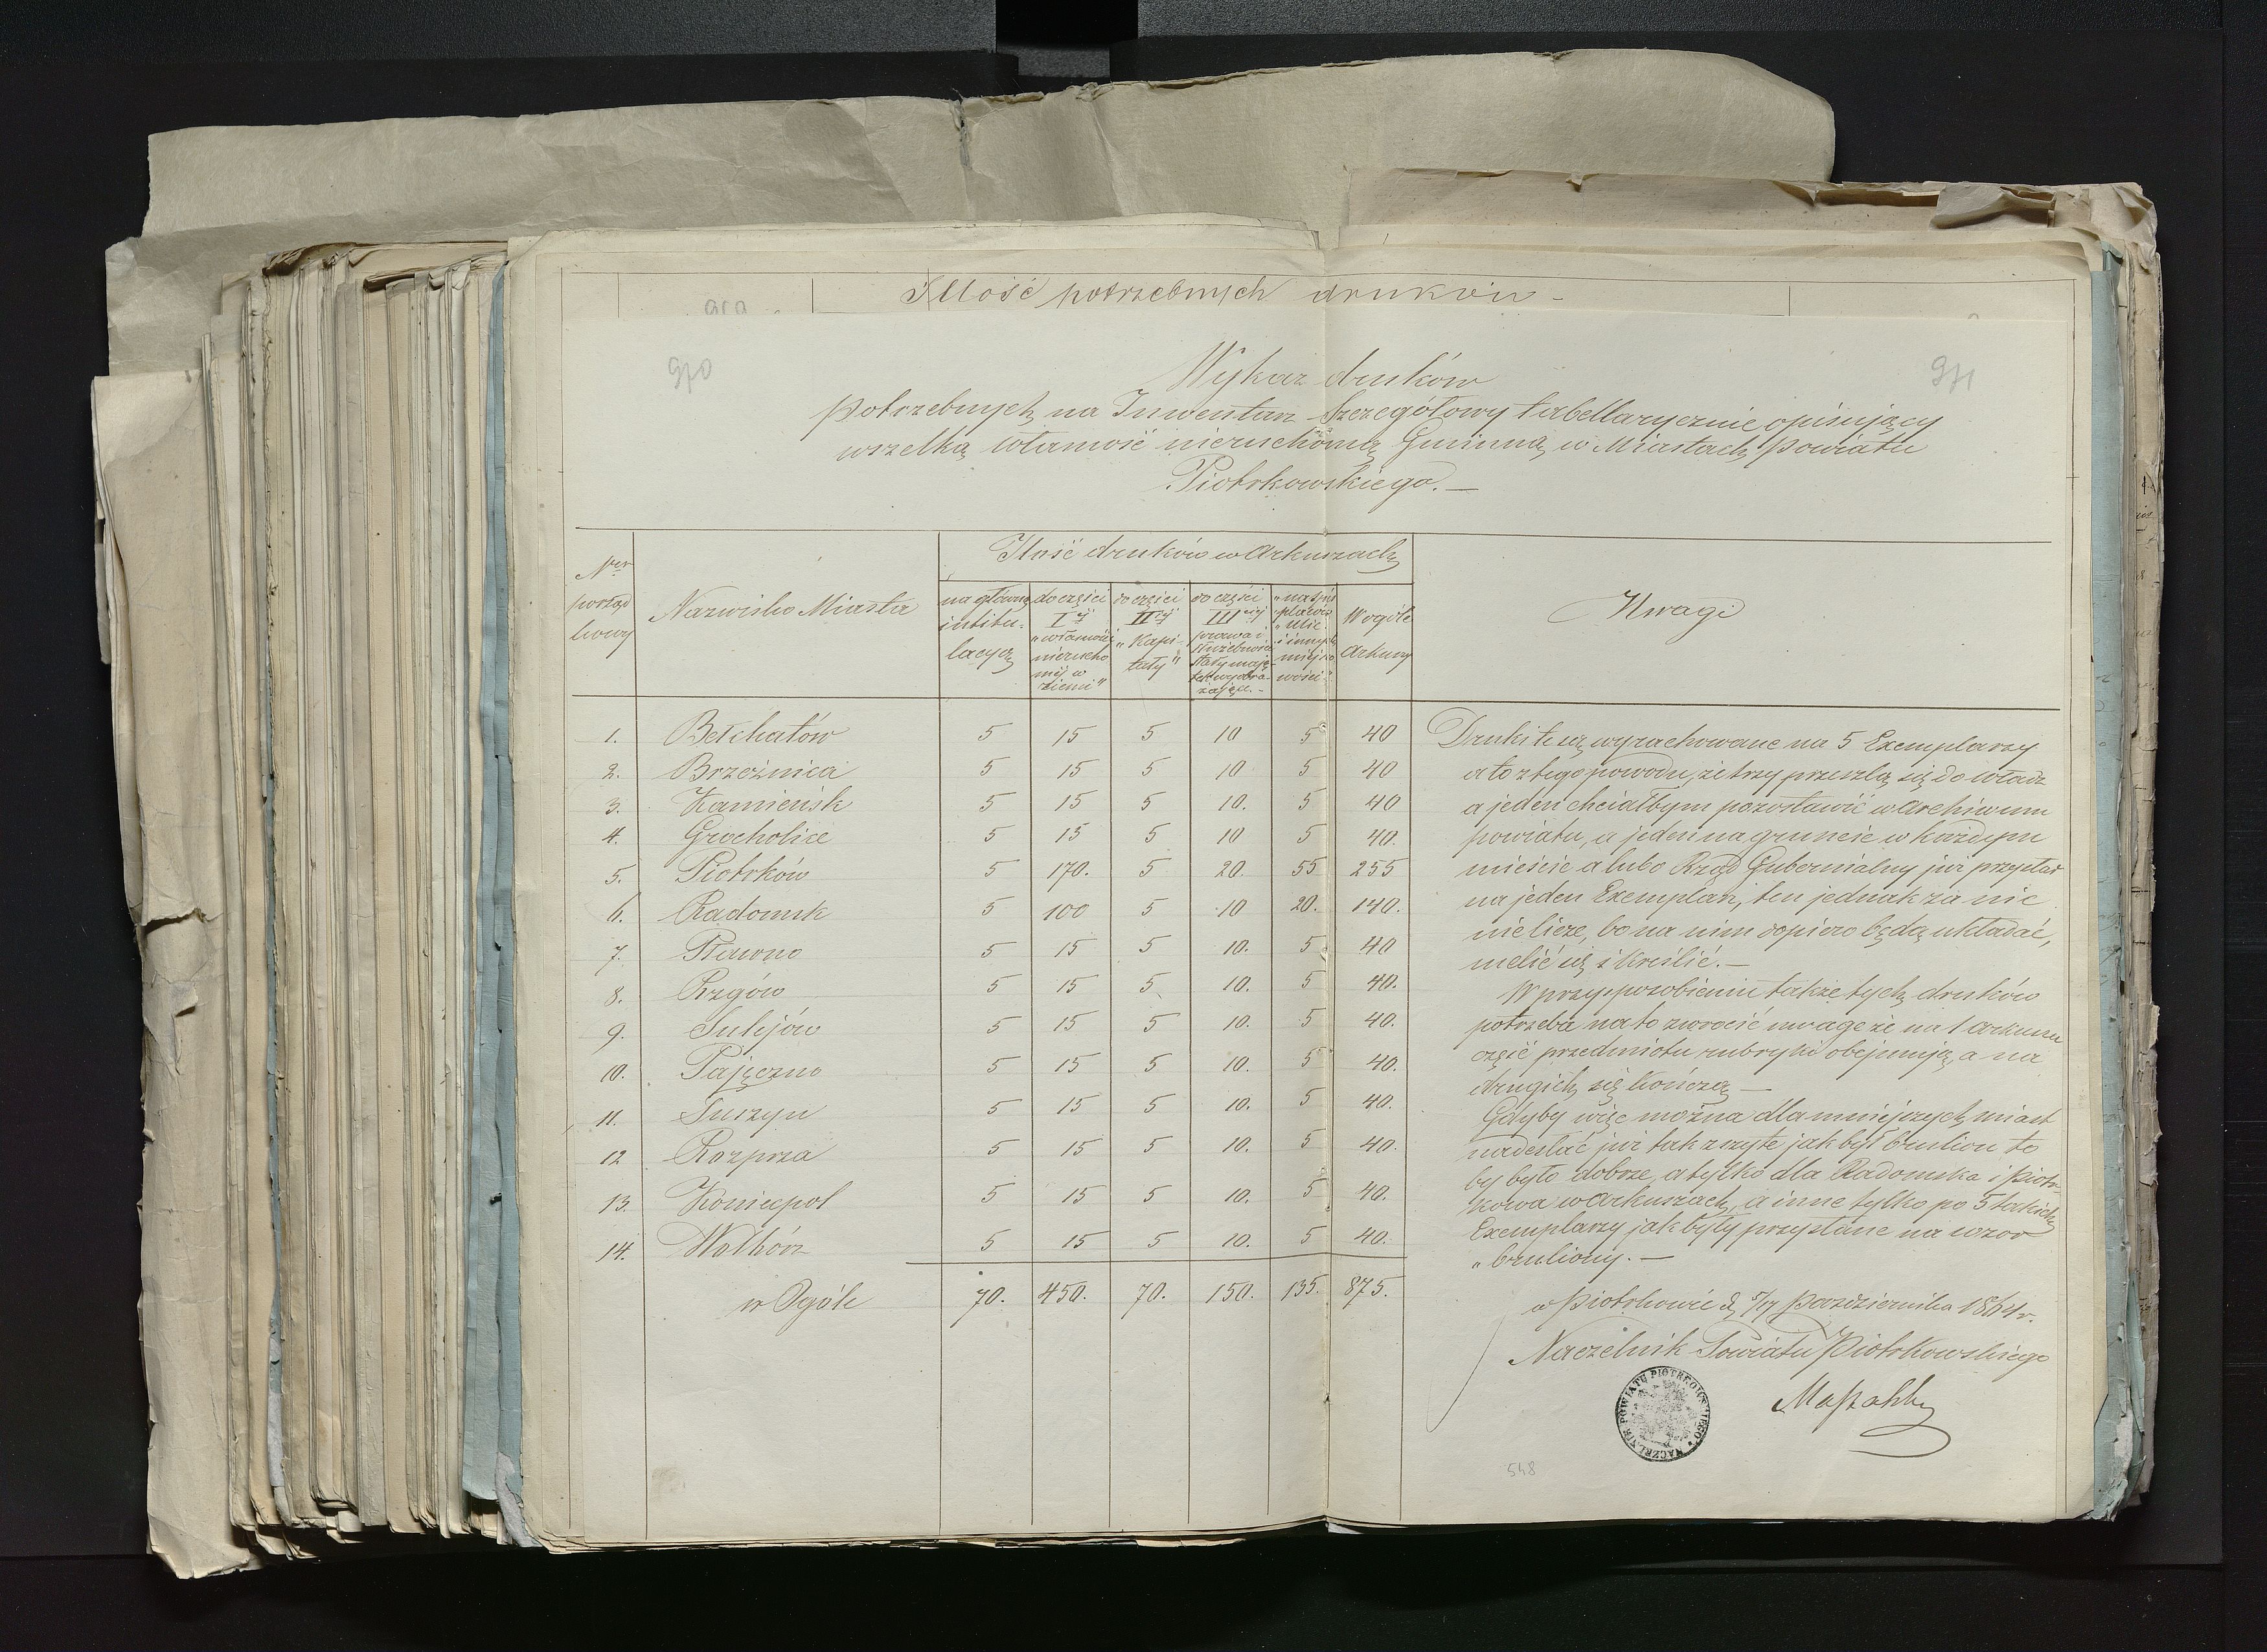 Ilość potrzebnych druków -
970
971
Wykaz druków
potrzebnych na Inwentarz Szczegółowy tabellarycznie opisujący
wszelką własność nieruchomą Gminną w Miastach Powiatu
Piotrkowskiego. —
Ner porząd kowy
Nazwisko Miasta
Ilość druków w arkuszach
na główną intitu- lacyą
do części I ej „własności nierucho méj w ziemi"
do części II ej „Kapi- tały"
do części III ej prawa i służebności
Wogóle Arkuszy
Uwagi
1. Bełchatów 5 15 5 10 5 40
2. Brzeźnica 5 15 5 10 5 40
3. Kamieńsk 5 15 5 10. 5 40
4. Grocholice 5 15 5 10 5 40.
5. Piotrków 5 170. 5 20. 55 255
6. Radomsk 5 100 5 10 20. 140.
7. Pławno 5 15 5 10. 5 40
8. Rzgów 5 15 5 10. 5 40.
9. Sulejów 5 15 5 10. 5 40.
10. Pajęczno 5 15 5 10. 5 40.
11. Tuszyn 5 15 5 10. 5 40.
12 Rozprza 5 15 5 10. 5 40.
13. Koniecpol 5 15 5 10. 5 40.
14. Wolbórz 5 15 5 10. 5 40.
w Ogóle 70. 450. 70. 150. 135. 875.
Druki te są wyrachowane na 5 Exemplarzy
a to z tego powodu, że trzy przeszlą się do władz
a jeden chciałbym pozostawić w Archiwum
powiatu, a jeden na gruncie w każdym
mieście a lubo Rząd Gubernialny już przysłał
na jeden Exemplarz, ten jednak za nic
nie liczę, bo na nim dopiero będą układać,
mylić się i kreślić. —
W przysposobieniu także tych druków
potrzeba na to zwrócić uwagę że na 1 arkuszu
część przedmiotu rubryki obejmują, a na
drugich się kończą —
Gdyby więc można dla mniejszych miast
nadesłać już tak zszyte jak był brulion to
by było dobrze, a tylko dla Radomska i Piotr-
kowa w arkuszach, a inne tylko po 5 takich
Exemplarzy jak były przysłane na wzór
„bruliony. —
w Piotrkowie d 5/17 Października 1864 r.
Naczelnik Powiatu Piotrkowskiego
NACZELNIK POWIATU PIOTRKOWSKIEGO
548